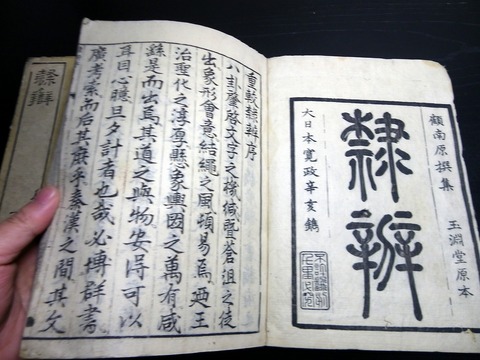 顧南原撰集
玉淵堂原本
隸辨
大日本寛政辛亥鐫
重較隸辨序
八卦肇啓文字之機緘曁蒼沮之徒
出象形會意結繩之風頓易焉王
治聖化之淳厚懸象輿圖之萬有咸
繇是而出焉其道之與物安得可以
耳目心臆旦夕計者也哉必博群書
廣考索而后其庶乎秦漢之間其文
隸辨